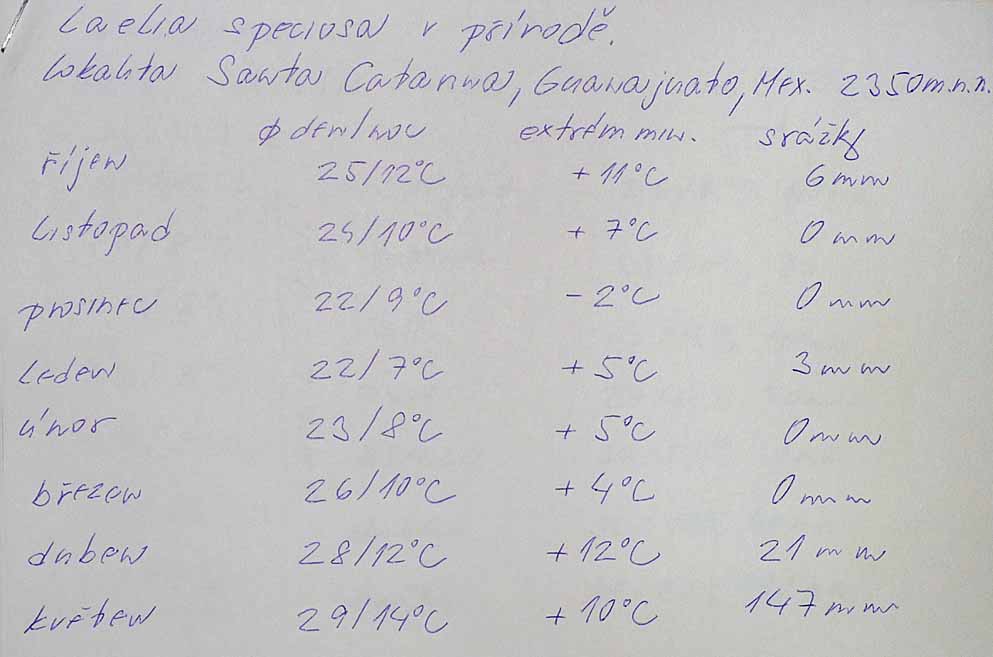 Laelia speciosa v přírodě.
lokalita Santa Catarina, Guanajuato, Mex. 2350m.n.n.
ϕ den/noc extrém min. srážky
říjen 25/12°C +11°C 6mm
listopad 25/10°C + 7°C 0 mm
prosinec 22/9°C -2°C 0mm
leden 22/7°C +5°C 3mm
únor 23/8°C +5°C 0mm
březen 26/10°C +4°C 0mm
duben 28/12°C +12°C 21mm
květen 29/14°C +10°C 147mm